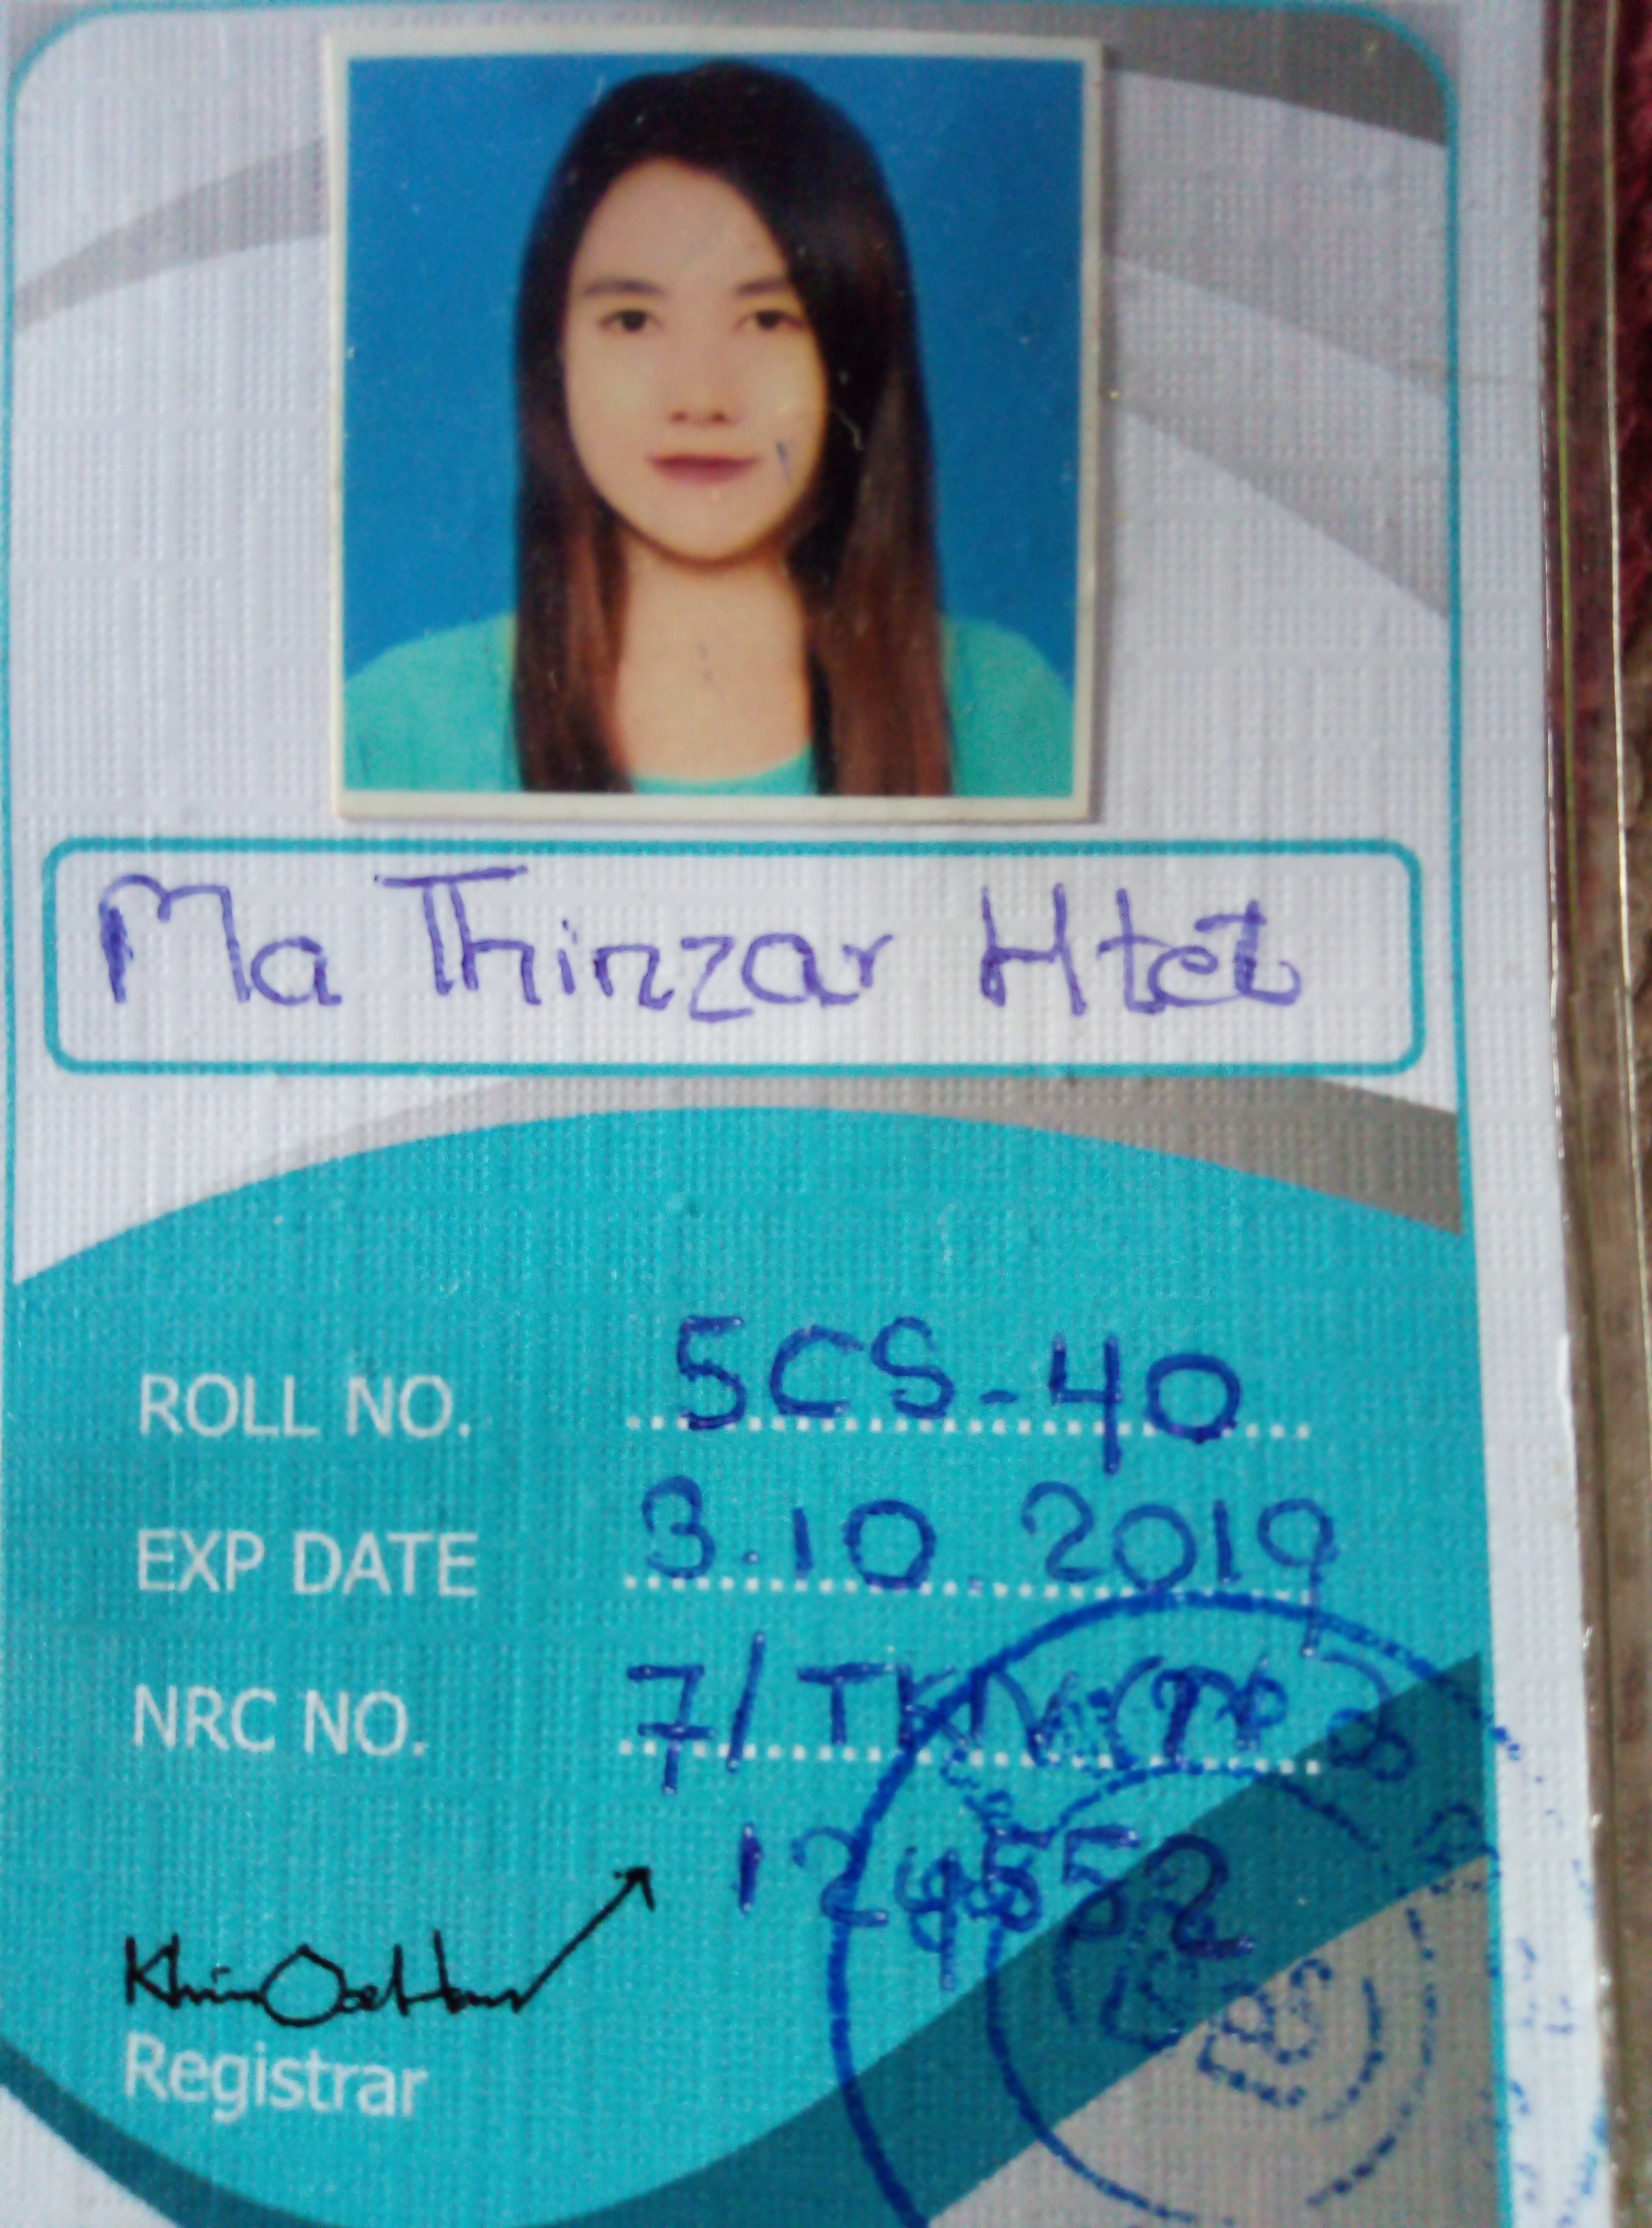 Ma Thinzar Htet
ROLL NO. 5CS-40
EXP DATE 3.10.2019
NRC NO. 7/
124552
Registrar